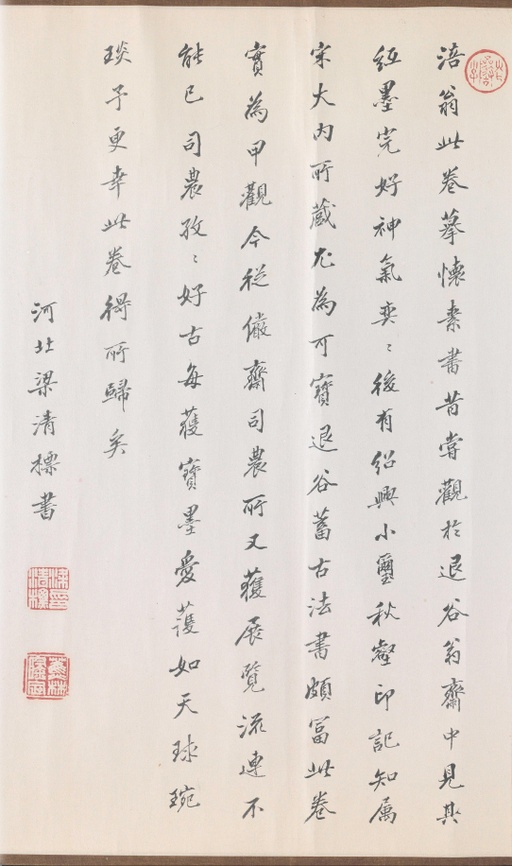 涪翁此卷摹懷素書昔嘗觀於退谷翁齋中見其
紙墨完好神氣奕〻後有紹興小璽秋壑印記知屬
宋大內所藏尤為可寶退谷蓄古法書頗冨此卷
實為甲觀今從儼齋司農所又獲展覽流連不
能已司農孜〻好古每獲寶墨愛護如天球琬
琰予更幸此卷得所歸矣
河北梁清標書